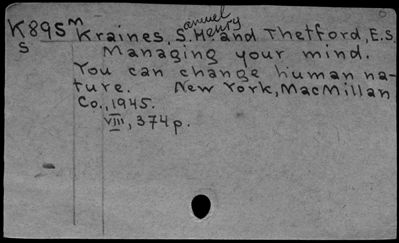 K895m Kraines, S.H. and Thetford, E.S.
amuel
Henry
S
Managing your mind.
You can change human na-
ture. New York, MacMillan
Co., 1945.
VIII, 374p.